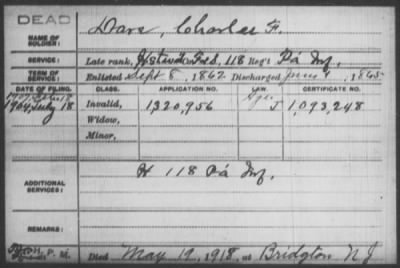 DEAD
NAME OF SOLDIER: Dare, Charles F.
SERVICE: Late rank, F & S, 118 Reg't Pa Inf.
TERM OF SERVICE: Enlisted Sept 8, 1862 Discharged June 1, 1865
DATE OF FILING. CLASS. APPLICATION NO. LAW. CERTIFICATE NO.
1904, July 18 Invalid, 1,320,956 Age. J 1,093,248
Widow,
Minor,
ADDITIONAL SERVICES: H 118 Pa Inf.
REMARKS:
P. M. Died May 19, 1918, at Bridgton N J